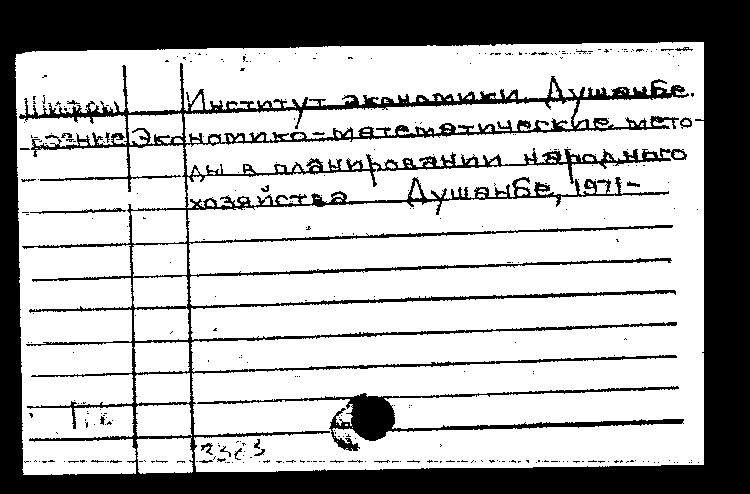 Шифры Институт экономики. Душанбе.
разные Экономико-математические мето-
ды в планировании народного
хозяйства Душанбе, 1971-